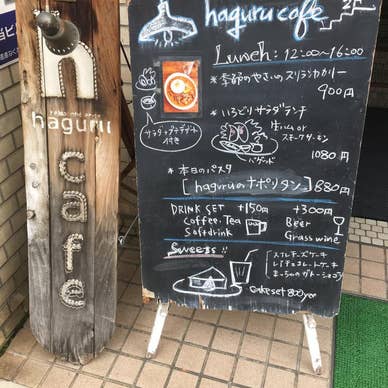 h
relax and style
haguru
cafe
haguru cafe 2F
Lunch: 12:00~16:00
* 季節のやさいのスリランカカリー
900円
* いろどりサラダランチ
生ハム or
スモークサーモン
バゲット
1080円
サラタ、プチデザート
付き
* 本日のパスタ
[haguruのナポリタン] 880円
DRINK SET +150円 +300円
Coffee, Tea Beer
Softdrink Grass wine
Sweets!!
スフレチーズケーキ
レイチョコレートケーキ
まっちゃのガトーショコラ
Cake set 800yen